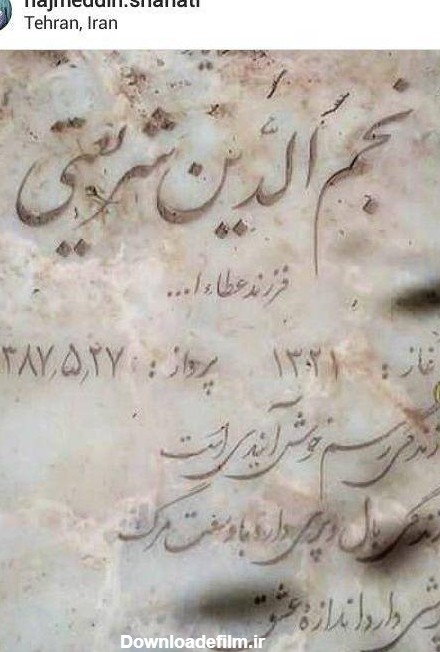 najmeddin.shariati
Tehran, Iran
نجم الدّین شریعتی
فرزند عطاءا...
غاز : ۱۳۲۱ پرواز : ۳۸۷,۵,۲۷
زندگی رسم خوش آیندی است
زندگی بال و پری دارد با وسعت مرگ
پرشی دارد اندازه عشق
Downloadefilm.ir